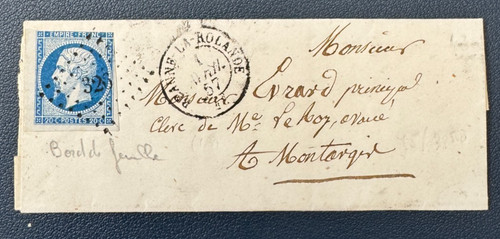 EMPIRE FRANC
20 C. POSTES 20 C.
328
BEAUNE-LA-ROLANDE
1
AVRIL
57
Monsieur
Monsieur Evrard principal
Clerc de Me. Le Roy, avoué
A Montargis
Bord de feuille